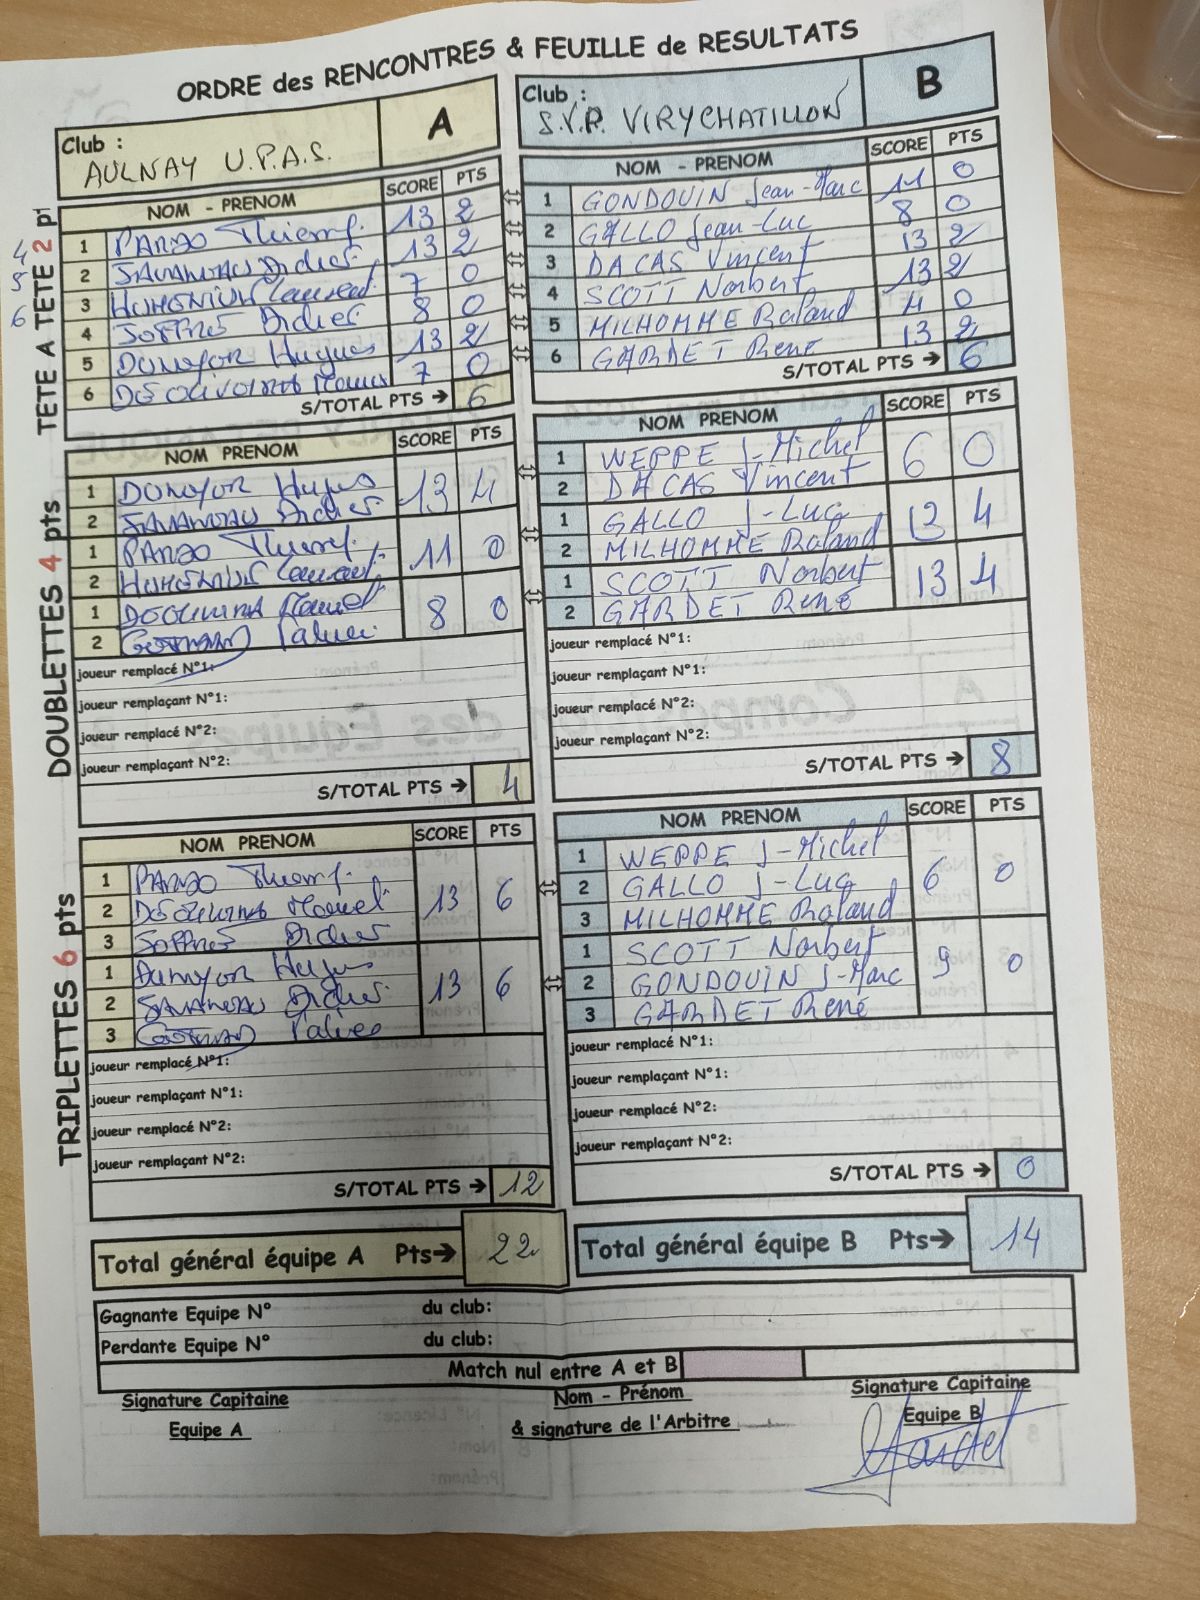 ORDRE des RENCONTRES & FEUILLE de RESULTATS
Club :
AULNAY U.P.A.S.
A
TETE A TETE 2 pt
4
5
6
NOM - PRENOM SCORE PTS
1 PARDO Thierry 13 2
2 Didier 13 2
3 Laurent 7 0
4 Didier 8 0
5 DUMYOR Hugues 13 2
6 7 0
S/TOTAL PTS → 6
Club :
S.V.P. VIRYCHATILLON
B
NOM - PRENOM SCORE PTS
1 GONDOUIN Jean-Marc 11 0
2 GALLO Jean-Luc 8 0
3 DACAS Vincent 13 2
4 SCOTT Norbert 13 2
5 MILHOMME Roland 4 0
6 GARDET René 13 2
S/TOTAL PTS → 6
DOUBLETTES 4 pts
NOM PRENOM SCORE PTS
1 DUMYOR Hugues 13 4
2 Didier
1 PARDO Thierry 11 0
2 Laurent
1 8 0
2
joueur remplacé N°1:
joueur remplaçant N°1:
joueur remplacé N°2:
joueur remplaçant N°2:
S/TOTAL PTS → 4
NOM PRENOM SCORE PTS
1 WEPPE J-Michel 6 0
2 DACAS Vincent
1 GALLO J-Luc 13 4
2 MILHOMME Roland
1 SCOTT Norbert 13 4
2 GARDET René
joueur remplacé N°1:
joueur remplaçant N°1:
joueur remplacé N°2:
joueur remplaçant N°2:
S/TOTAL PTS → 8
TRIPLETTES 6 pts
NOM PRENOM SCORE PTS
1 PARDO Thierry 13 6
2
3 Didier
1 DUMYOR Hugues 13 6
2 Didier
3
joueur remplacé N°1:
joueur remplaçant N°1:
joueur remplacé N°2:
joueur remplaçant N°2:
S/TOTAL PTS → 12
NOM PRENOM SCORE PTS
1 WEPPE J-Michel 6 0
2 GALLO J-Luc
3 MILHOMME Roland
1 SCOTT Norbert 9 0
2 GONDOUIN J-Marc
3 GARDET René
joueur remplacé N°1:
joueur remplaçant N°1:
joueur remplacé N°2:
joueur remplaçant N°2:
S/TOTAL PTS → 0
Total général équipe A Pts→ 22
Total général équipe B Pts→ 14
Gagnante Equipe N° du club:
Perdante Equipe N° du club:
Match nul entre A et B
Signature Capitaine
Equipe A
Nom - Prénom
& signature de l'Arbitre
Signature Capitaine
Equipe B